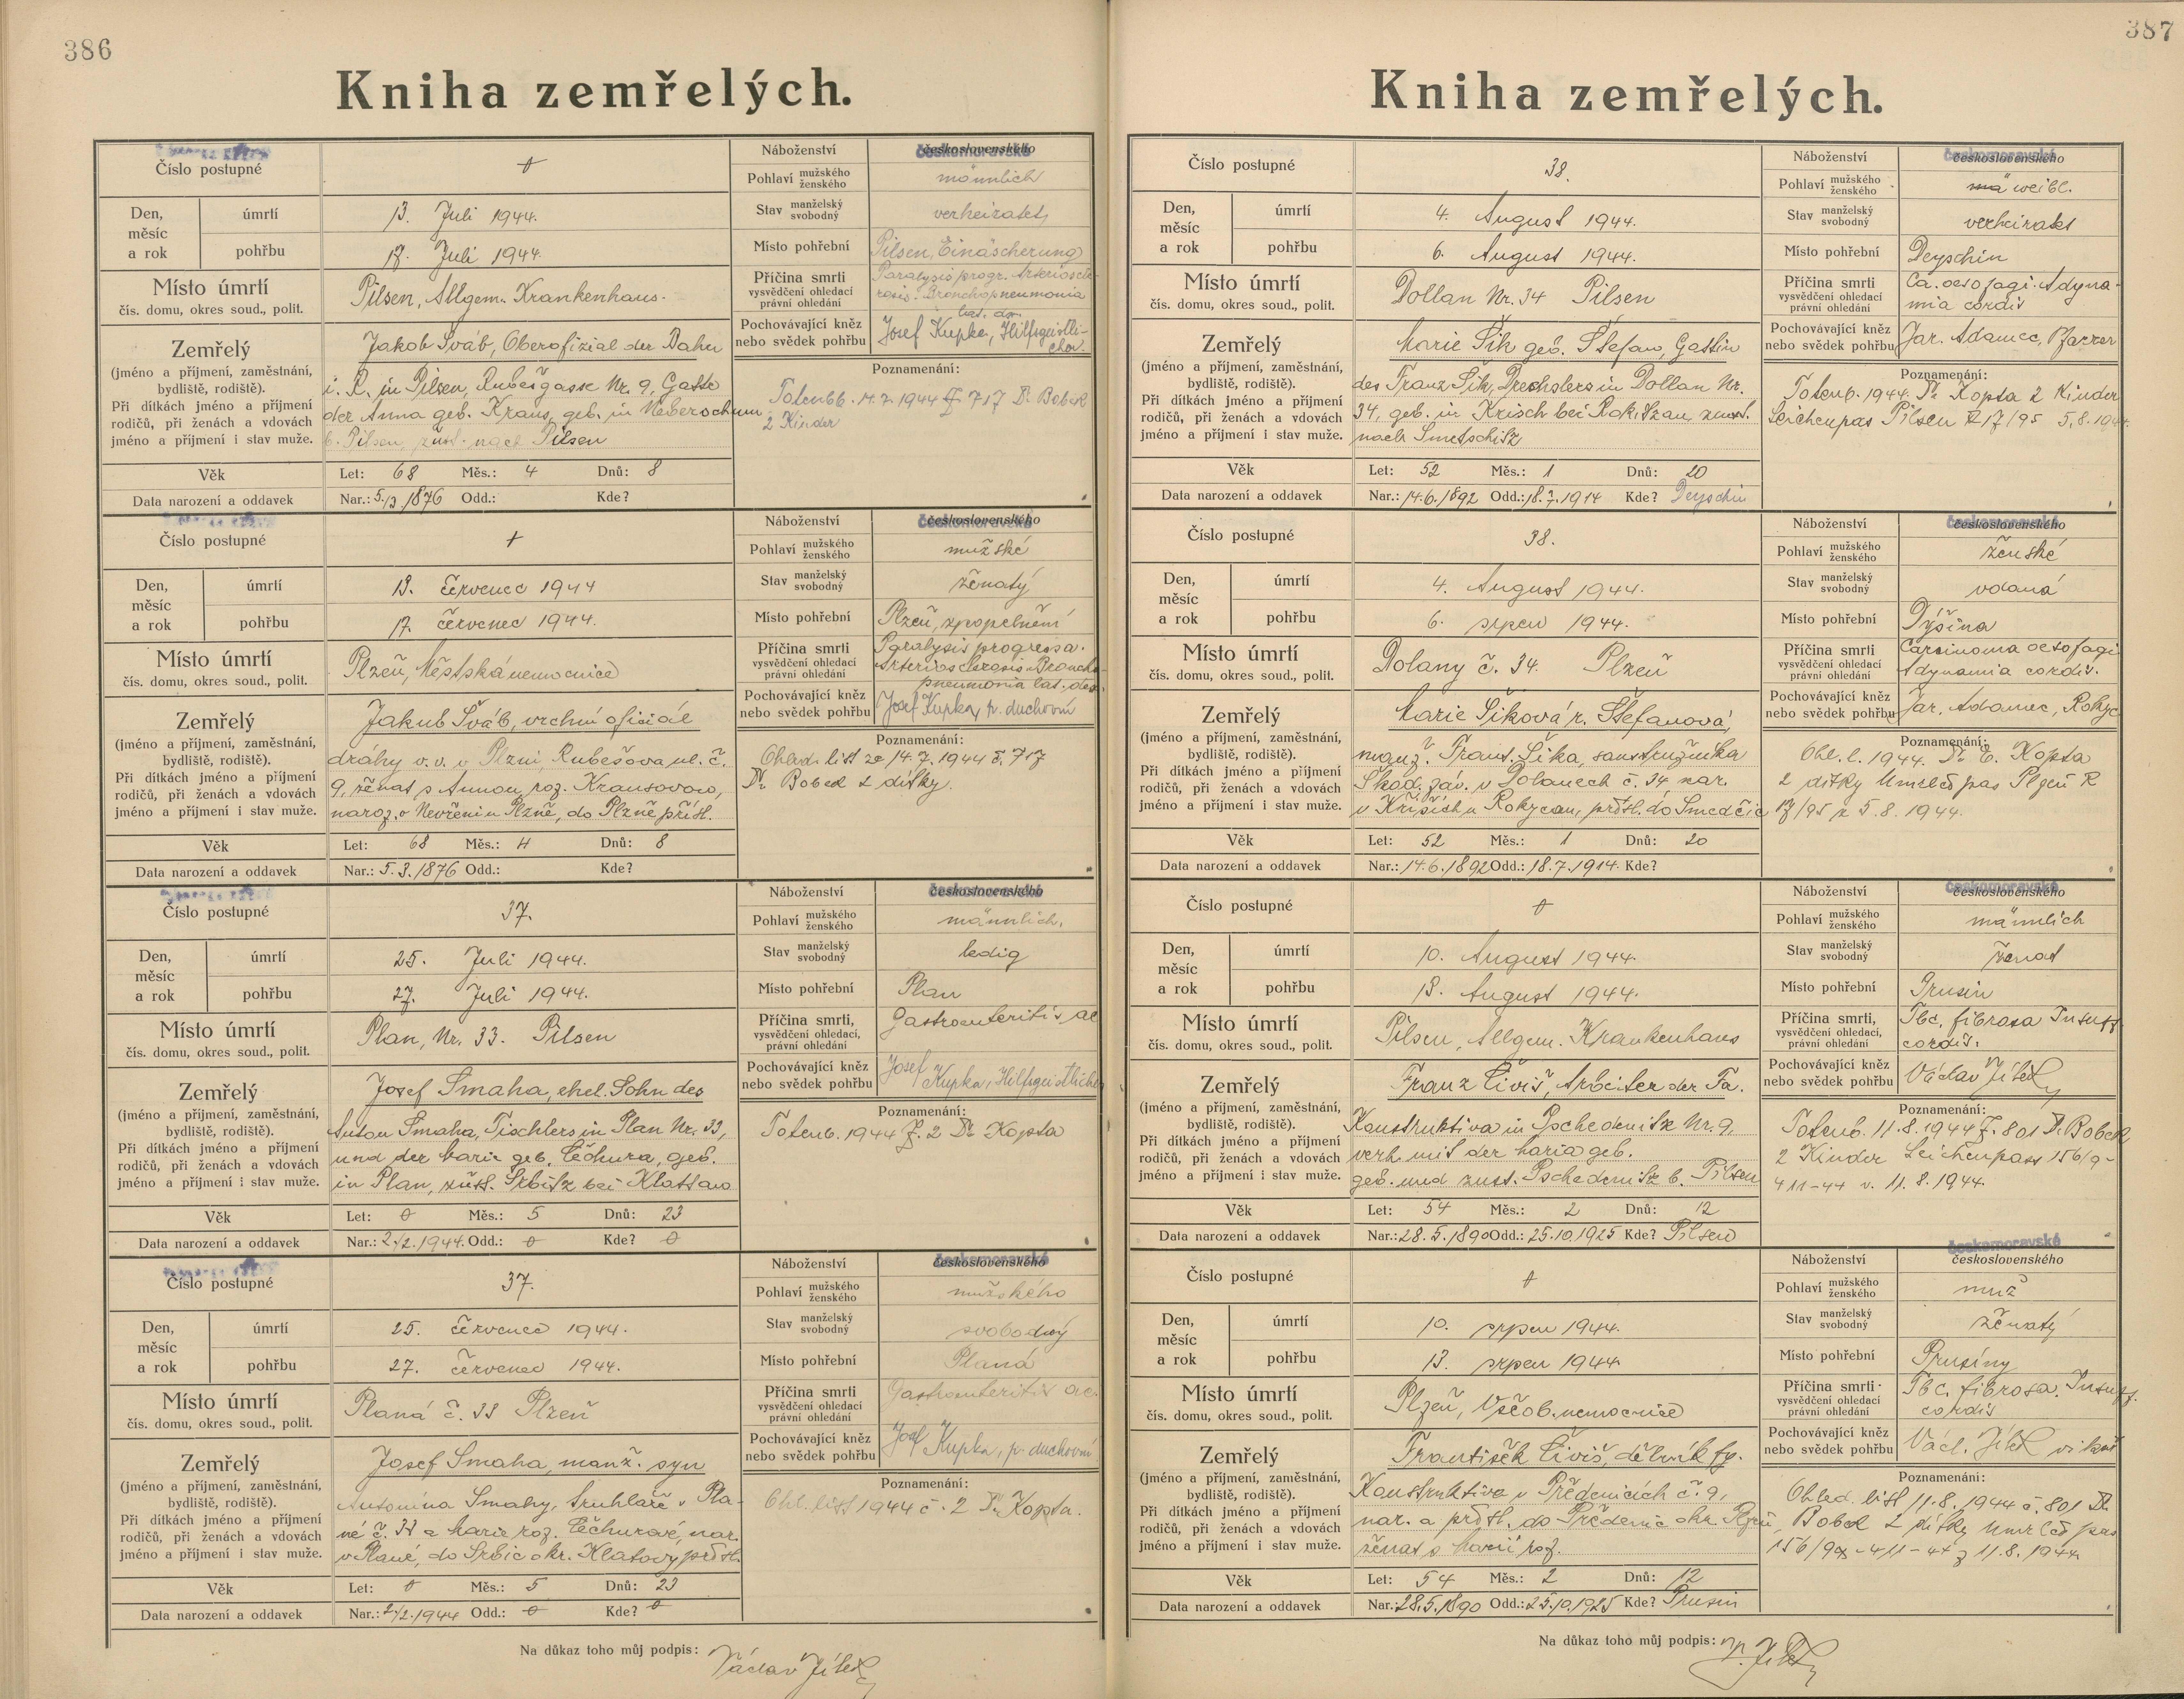 386
Kniha zemřelých.
Číslo postupné
Náboženství československého českomoravské
Pohlaví mužského ženského männlich
Den, měsíc a rok
úmrtí 13. Juli 1944.
Stav manželský svobodný verheiratet
pohřbu 17. Juli 1944.
Místo pohřební Pilsen, Einäscherung
Místo úmrtí
čís. domu, okres soud., polit.
Pilsen, Allgem. Krankenhaus.
Příčina smrti
vysvědčení ohledací
právní ohledání
Paralysis progr. Arterioscle-
rosis. Bronchopneumonia
lat. dx.
Pochovávající kněz
nebo svědek pohřbu
Josef Kupka, Hilfsgeistli-
cher.
Zemřelý
(jméno a příjmení, zaměstnání,
bydliště, rodiště).
Při dítkách jméno a příjmení
rodičů, při ženách a vdovách
jméno a příjmení i stav muže.
Jakob Šváb, Oberofizial der Bahn
i. R. in Pilsen, Rubešgasse Nr. 9, Gatte
der Anna geb. Kraus, geb. in Neberschum
b. Pilsen, zust. nach Pilsen
Poznamenání:
Totenb. 14.7.1944 Z. 717 Dr. Bobek
2 Kinder
Věk Let: 68 Měs.: 4 Dnů: 8
Data narození a oddavek Nar.: 5./3.1876 Odd.: Kde?
Číslo postupné
Náboženství československého českomoravské
Pohlaví mužského ženského mužské
Den, měsíc a rok
úmrtí 13. červenec 1944
Stav manželský svobodný ženatý
pohřbu 17. červenec 1944.
Místo pohřební Plzeň, zpopelnění
Místo úmrtí
čís. domu, okres soud., polit.
Plzeň, Městská nemocnice
Příčina smrti
vysvědčení ohledací
právní ohledání
Paralysis progressa.
Arteriosclerosis. Broncho-
pneumonia lat. dex.
Pochovávající kněz
nebo svědek pohřbu
Josef Kupka, p. duchovní
Zemřelý
(jméno a příjmení, zaměstnání,
bydliště, rodiště).
Při dítkách jméno a příjmení
rodičů, při ženách a vdovách
jméno a příjmení i stav muže.
Jakub Šváb, vrchní oficiál
dráhy v. v. v Plzni, Rubešova ul. č.
9, ženat s Annou roz. Krausovou,
naroz. v Nevřeni u Plzně, do Plzně přísl.
Poznamenání:
Ohled. list ze 14.7.1944 č. 717
Dr. Bobek 2 dítky.
Věk Let: 68 Měs.: 4 Dnů: 8
Data narození a oddavek Nar.: 5.3.1876 Odd.: Kde?
Číslo postupné 37.
Náboženství československého českomoravské
Pohlaví mužského ženského männlich.
Den, měsíc a rok
úmrtí 25. Juli 1944.
Stav manželský svobodný ledig
pohřbu 27. Juli 1944.
Místo pohřební Plan
Místo úmrtí
čís. domu, okres soud., polit.
Plan, Nr. 33. Pilsen
Příčina smrti,
vysvědčení ohledací,
právní ohledání
Gastroenteritis ac
Pochovávající kněz
nebo svědek pohřbu
Josef
Kupka, Hilfsgeistlicher
Zemřelý
(jméno a příjmení, zaměstnání,
bydliště, rodiště).
Při dítkách jméno a příjmení
rodičů, při ženách a vdovách
jméno a příjmení i stav muže.
Josef Smaha, ehel. Sohn des
Anton Smaha, Tischlers in Plan Nr. 33,
und der Marie geb. Čechura, geb.
in Plan, zust. Srbitz bei Klattau
Poznamenání:
Totenb. 1944 Z. 2 Dr. Kopta
Věk Let: 0 Měs.: 5 Dnů: 23
Data narození a oddavek Nar.: 2./2.1944. Odd.: 0 Kde? 0
Číslo postupné 37.
Náboženství československého českomoravské
Pohlaví mužského ženského mužského
Den, měsíc a rok
úmrtí 25. červenec 1944.
Stav manželský svobodný svobodný
pohřbu 27. červenec 1944.
Místo pohřební Planá
Místo úmrtí
čís. domu, okres soud., polit.
Planá č. 33 Plzeň
Příčina smrti
vysvědčení ohledací
právní ohledání
Gastroenteritis ac.
Pochovávající kněz
nebo svědek pohřbu
Josef Kupka, p. duchovní
Zemřelý
(jméno a příjmení, zaměstnání,
bydliště, rodiště).
Při dítkách jméno a příjmení
rodičů, při ženách a vdovách
jméno a příjmení i stav muže.
Josef Smaha, manž. syn
Antonína Smahy, truhláře v Pla-
né č. 33 a Marie roz. Čechurové, nar.
v Plané, do Srbic okr. Klatovy přísl.
Poznamenání:
Ohl. list 1944 č. 2 Dr. Kopta.
Věk Let: 0 Měs.: 5 Dnů: 23
Data narození a oddavek Nar.: 2/2.1944 Odd.: 0 Kde? 0
Na důkaz toho můj podpis: Václav Jílek
387
Kniha zemřelých.
Číslo postupné 38.
Náboženství československého českomoravské
Pohlaví mužského ženského mä weibl.
Den, měsíc a rok
úmrtí 4. August 1944.
Stav manželský svobodný verheiratet
pohřbu 6. August 1944.
Místo pohřební Deyschin
Místo úmrtí
čís. domu, okres soud., polit.
Dollan Nr. 34 Pilsen
Příčina smrti
vysvědčení ohledací
právní ohledání
Ca. oesofagi. Adyna-
mia cordis
Pochovávající kněz
nebo svědek pohřbu
Jar. Adamec, Pfarrer
Zemřelý
(jméno a příjmení, zaměstnání,
bydliště, rodiště).
Při dítkách jméno a příjmení
rodičů, při ženách a vdovách
jméno a příjmení i stav muže.
Marie Šik geb. Štefan, Gattin
des Franz Šik, Drechslers in Dollan Nr.
34, geb. in Krisch bei Rokitzan, zust.
nach Smetschitz
Poznamenání:
Totenb. 1944. Dr. Kopta 2 Kinder
Leichenpas Pilsen R 17/95 5.8.1944.
Věk Let: 52 Měs.: 1 Dnů: 20
Data narození a oddavek Nar.: 14.6.1892 Odd.: 18.7.1914 Kde? Deyschin
Číslo postupné 38.
Náboženství československého českomoravské
Pohlaví mužského ženského ženské
Den, měsíc a rok
úmrtí 4. August 1944.
Stav manželský svobodný vdaná
pohřbu 6. srpen 1944.
Místo pohřební Dýšina
Místo úmrtí
čís. domu, okres soud., polit.
Dolany č. 34. Plzeň
Příčina smrti
vysvědčení ohledací
právní ohledání
Carcinoma oesofagi
Adynamia cordis.
Pochovávající kněz
nebo svědek pohřbu
Jar. Adamec, Rokyc
Zemřelý
(jméno a příjmení, zaměstnání,
bydliště, rodiště).
Při dítkách jméno a příjmení
rodičů, při ženách a vdovách
jméno a příjmení i stav muže.
Marie Šiková r. Štefanová,
manž. Frant. Šika, soustružníka
Škod. záv. v Dolanech č. 34 nar.
v Křiších u Rokycan, přísl. do Smedčic
Poznamenání:
Ohl. l. 1944. Dr. E. Kopta
2 dítky Umrlčí pas Plzeň R
17/95 z 5.8.1944.
Věk Let: 52 Měs.: 1 Dnů: 20
Data narození a oddavek Nar.: 14.6.1892 Odd.: 18.7.1914. Kde?
Číslo postupné
Náboženství československého českomoravské
Pohlaví mužského ženského männlich
Den, měsíc a rok
úmrtí 10. August 1944.
Stav manželský svobodný ženat
pohřbu 13. August 1944.
Místo pohřební Prusin
Místo úmrtí
čís. domu, okres soud., polit.
Pilsen, Allgem. Krankenhaus
Příčina smrti,
vysvědčení ohledací,
právní ohledání
Tbc. fibrosa Insuff.
cordis.
Pochovávající kněz
nebo svědek pohřbu
Václav Jílek
Zemřelý
(jméno a příjmení, zaměstnání,
bydliště, rodiště).
Při dítkách jméno a příjmení
rodičů, při ženách a vdovách
jméno a příjmení i stav muže.
Franz Čiviš, Arbeiter der Fa.
Konstruktiva in Pschedenitz Nr. 9,
verh. mit der Maria geb.
geb. und zust. Pschedenitz b. Pilsen
Poznamenání:
Totenb. 11.8.1944 Z. 801 Dr. Bobek
2 Kinder Leichenpass 156/9-
411-44 v. 11.8.1944.
Věk Let: 54 Měs.: 2 Dnů: 12
Data narození a oddavek Nar.: 28.5.1890 Odd.: 25.10.1925 Kde? Pilsen
Číslo postupné
Náboženství československého českomoravské
Pohlaví mužského ženského muž
Den, měsíc a rok
úmrtí 10. srpen 1944.
Stav manželský svobodný ženatý
pohřbu 13. srpen 1944.
Místo pohřební Prusiny
Místo úmrtí
čís. domu, okres soud., polit.
Plzeň, Všeob. nemocnice
Příčina smrti
vysvědčení ohledací
právní ohledání
Tbc. fibrosa. Insuff.
cordis
Pochovávající kněz
nebo svědek pohřbu
Václ. Jílek vikář
Zemřelý
(jméno a příjmení, zaměstnání,
bydliště, rodiště).
Při dítkách jméno a příjmení
rodičů, při ženách a vdovách
jméno a příjmení i stav muže.
František Čiviš, dělník fy.
Konstruktiva v Předenicích č. 9,
nar. a přísl. do Předenic okr. Plzeň,
ženat s Marií roz.
Poznamenání:
Ohled. list 11.8.1944 č. 801 Dr.
Bobek 2 dítky Umrlčí pas
156/9 - 411-44 z 11.8.1944.
Věk Let: 54 Měs.: 2 Dnů: 12
Data narození a oddavek Nar.: 28.5.1890 Odd.: 25.10.1925 Kde? Prusin
Na důkaz toho můj podpis: V. Jílek